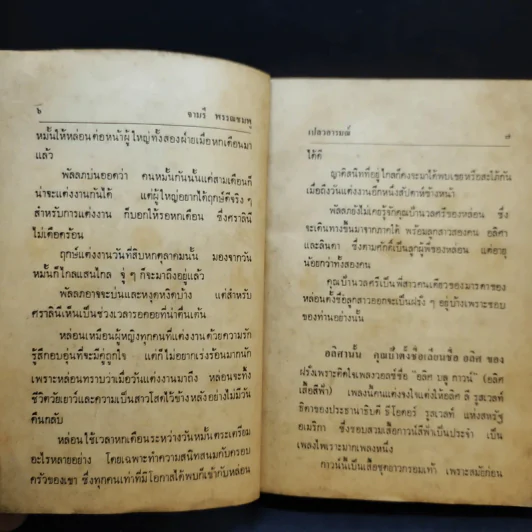 ๖
จามรี พรรณชมพู
หมั้นให้หล่อนต่อหน้าผู้ใหญ่ทั้งสองฝ่ายเมื่อหกเดือนมา
แล้ว
พัลลภบ่นออดว่า คนหมั้นกันนั้นแต่สามเดือนก็
น่าจะแต่งงานกันได้ แต่ผู้ใหญ่อยากได้ฤกษ์ดีจริง ๆ
สำหรับการแต่งงาน ก็บอกให้รอหกเดือน ซึ่งศราลินี
ไม่เดือดร้อน
ฤกษ์แต่งงานวันที่สิบหกตุลาคมนั้น มองจากวัน
หมั้นก็ไกลแสนไกล จู่ ๆ ก็จะมาถึงอยู่แล้ว
พัลลภอาจจะบ่นและหงุดหงิดบ้าง แต่สำหรับ
ศราลินีเห็นเป็นช่วงเวลารอคอยที่น่าตื่นเต้น
หล่อนเหมือนผู้หญิงทุกคนที่แต่งงานด้วยความรัก
รู้สึกอบอุ่นที่จะมีคู่ถูกใจ แต่ก็ไม่อยากเร่งร้อนมากนัก
เพราะหล่อนทราบว่าเมื่อวันแต่งงานมาถึง หล่อนจะทิ้ง
ชีวิตวัยเยาว์และความเป็นสาวโสดไว้ข้างหลังอย่างไม่มีวัน
คืนกลับ
หล่อนใช้เวลาหกเดือนระหว่างวันหมั้นตระเตรียม
อะไรหลายอย่าง โดยเฉพาะทำความสนิทสนมกับครอบ
ครัวของเขา ซึ่งทุกคนเท่าที่มีโอกาสได้พบก็เข้ากับหล่อน
เปลวอารมณ์
๗
ได้ดี
ญาติสนิทที่อยู่ไกลก็คงจะมาได้พบเธอหรือสะใภ้กัน
เมื่อถึงวันแต่งงานอีกหนึ่งสัปดาห์ข้างหน้า
พัลลภยังไม่เคยรู้จักคุณป้านวลศรีของหล่อน ซึ่ง
จะเดินทางขึ้นมาจากภาคใต้ พร้อมลูกสาวสองคน อลิศา
และลินดา ซึ่งตามศักดิ์เป็นลูกผู้พี่ของหล่อน แต่อายุ
น้อยกว่าทั้งสองคน
คุณป้านวลศรีเป็นพี่สาวคนเดียวของมารดาของ
หล่อนตั้งชื่อลูกสาวออกจะเป็นฝรั่ง ๆ อยู่บ้างเพราะชอบ
ของท่านอย่างนั้น
อลิศานั้น คุณป้าตั้งชื่อเลียนชื่อ อลิศ ของ
ฝรั่งเพราะติดใจเพลงวอลซ์ชื่อ “อลิศ บลู กาวน์” (อลิศ
เสื้อสีฟ้า) เพลงนี้คนแต่งจงใจแต่งให้อลิศ ลี รูสเวลท์
ธิดาของประธานาธิบดี ธีโอดอร์ รูสเวลท์ แห่งสหรัฐ
อเมริกา ซึ่งชอบสวมเสื้อกาวน์สีฟ้าเป็นประจำ เป็น
เพลงไพเราะมากเพลงหนึ่ง
กาวน์นี้เป็นเสื้อชุดยาวกรอมเท้า เพราะสมัยก่อน